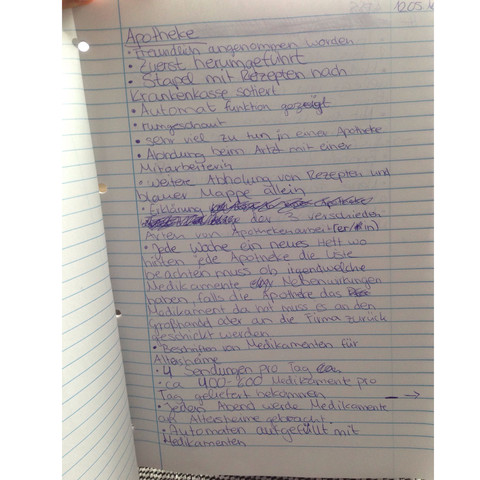 12.05.
Apotheke
• Freundlich angenommen worden
• Zuerst herumgeführt
• Stapel mit Rezepten nach
Krankenkasse sotiert
• Automat funktion gezeigt
• rumgeschaut
• sehr viel zu tun in einer Apotheke
• Abholung beim Artzt mit einer
Mitarbeiterin
• weitere Abholung von Rezepten und
blauer Mappe allein
• Erklärung der 3 verschieden
Arten von Apothekenarbeit(er/in)
• Jede Woche ein neues Heft wo
hinten jede Apotheke die Liste
beachten muss ob irgendwelche
Medikamente Nebenwirkungen
haben, falls die Apotheke das
Medikament da hat muss es an den
Großhandel oder an die Firma zurück
geschickt werden
• Beschriften von Medikamenten für
Altersheime
• 4 Sendungen pro Tag
• ca 400-800 Medikamente pro
Tag geliefert bekommen
• Jedem Abend werde Medikamente
an Altersheime gebracht
• Automaten aufgefüllt mit
Medikamenten